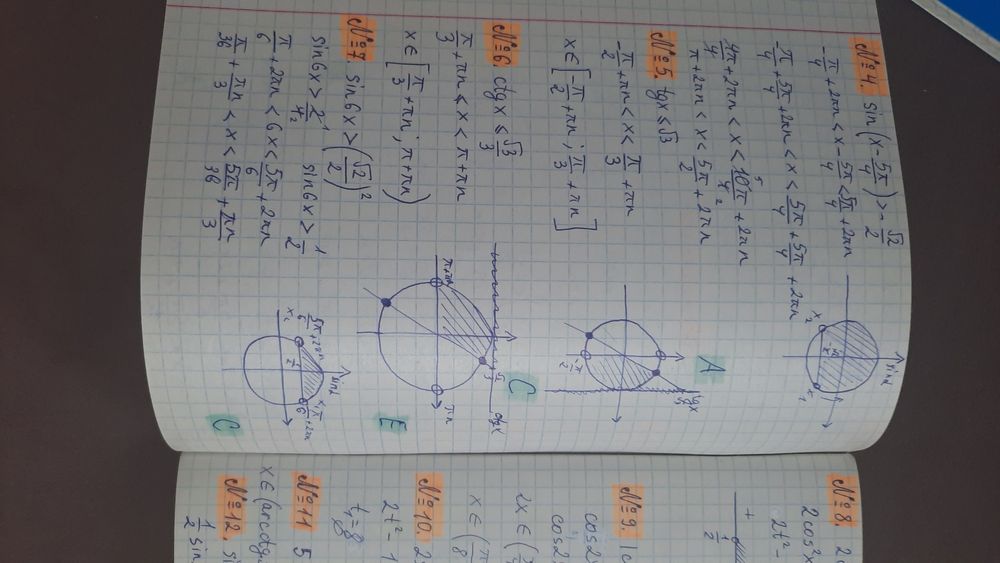 №4. sin(x-5π/4)>-√2/2
-π/4+2πn<x-5π/4<5π/4+2πn
-π/4+5π/4+2πn<x<5π/4+5π/4+2πn
4π/4+2πn<x<10π/4+2πn
π+2πn<x<5π/2+2πn
A
№5. tgx≤√3
-π/2+πn<x≤π/3+πn
x∈[-π/2+πn; π/3+πn]
C
№6. ctgx≤√3/3
π/3+πn≤x<π+πn
x∈[π/3+πn; π+πn)
E
№7. sin6x>(√2/2)²
sin6x>2/4 sin6x>1/2
π/6+2πn<6x<5π/6+2πn
π/36+πn/3<x<5π/36+πn/3
C
№8. 2c
2cos²x
2t²-
№9. |c
cos2
cos2
x∈(π/8
№10. 2
2t²-1
№11 5
x∈(arcctg
№12. s
1/2 sin